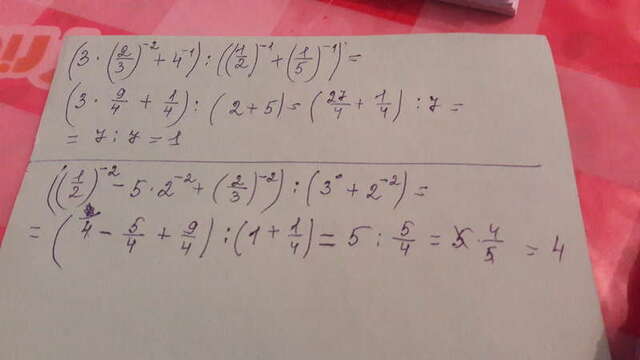 (3 · (2/3)^-2 + 4^-1) : ((1/2)^-1 + (1/5)^-1) =
(3 · 9/4 + 1/4) : (2 + 5) = (27/4 + 1/4) : 7 =
= 7 : 7 = 1
((1/2)^-2 - 5 · 2^-2 + (2/3)^-2) : (3^0 + 2^-2) =
= (4 - 5/4 + 9/4) : (1 + 1/4) = 5 : 5/4 = 5 · 4/5 = 4